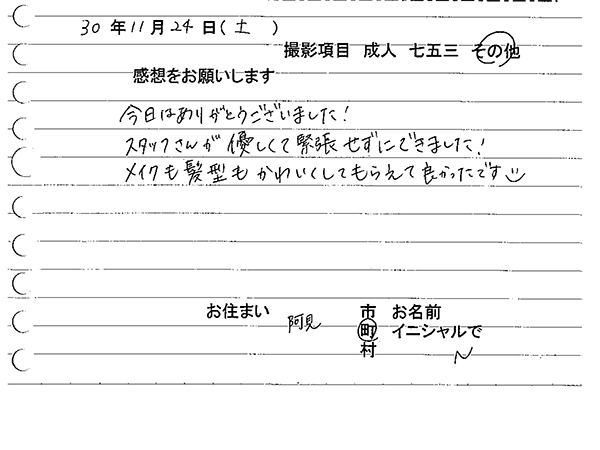 30 年 11 月 24 日 ( 土 )
撮影項目 成人 七五三 その他
感想をお願いします
今日はありがとうございました!
スタッフさんが優しくて緊張せずにできました!
メイクも髪型もかわいくしてもらえて良かったです
市 お名前
お住まい 阿見 町 イニシャルで
村 N